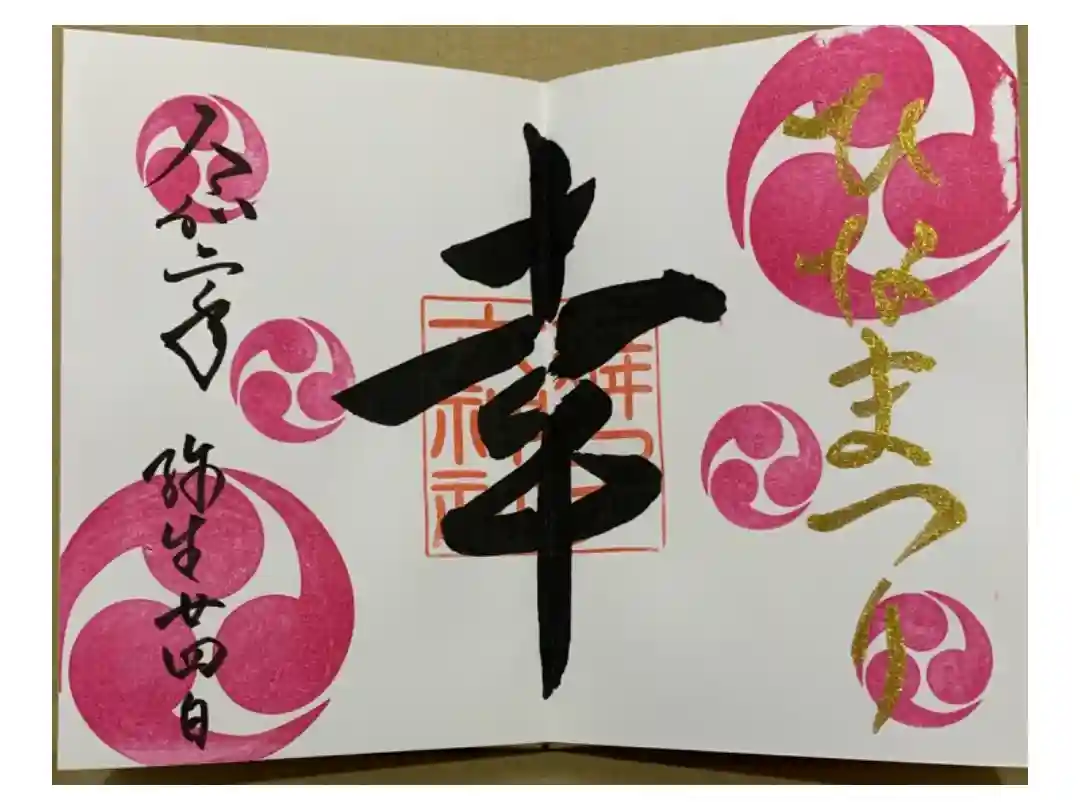 ひなまつり
幸
令和 年 弥生廿四日